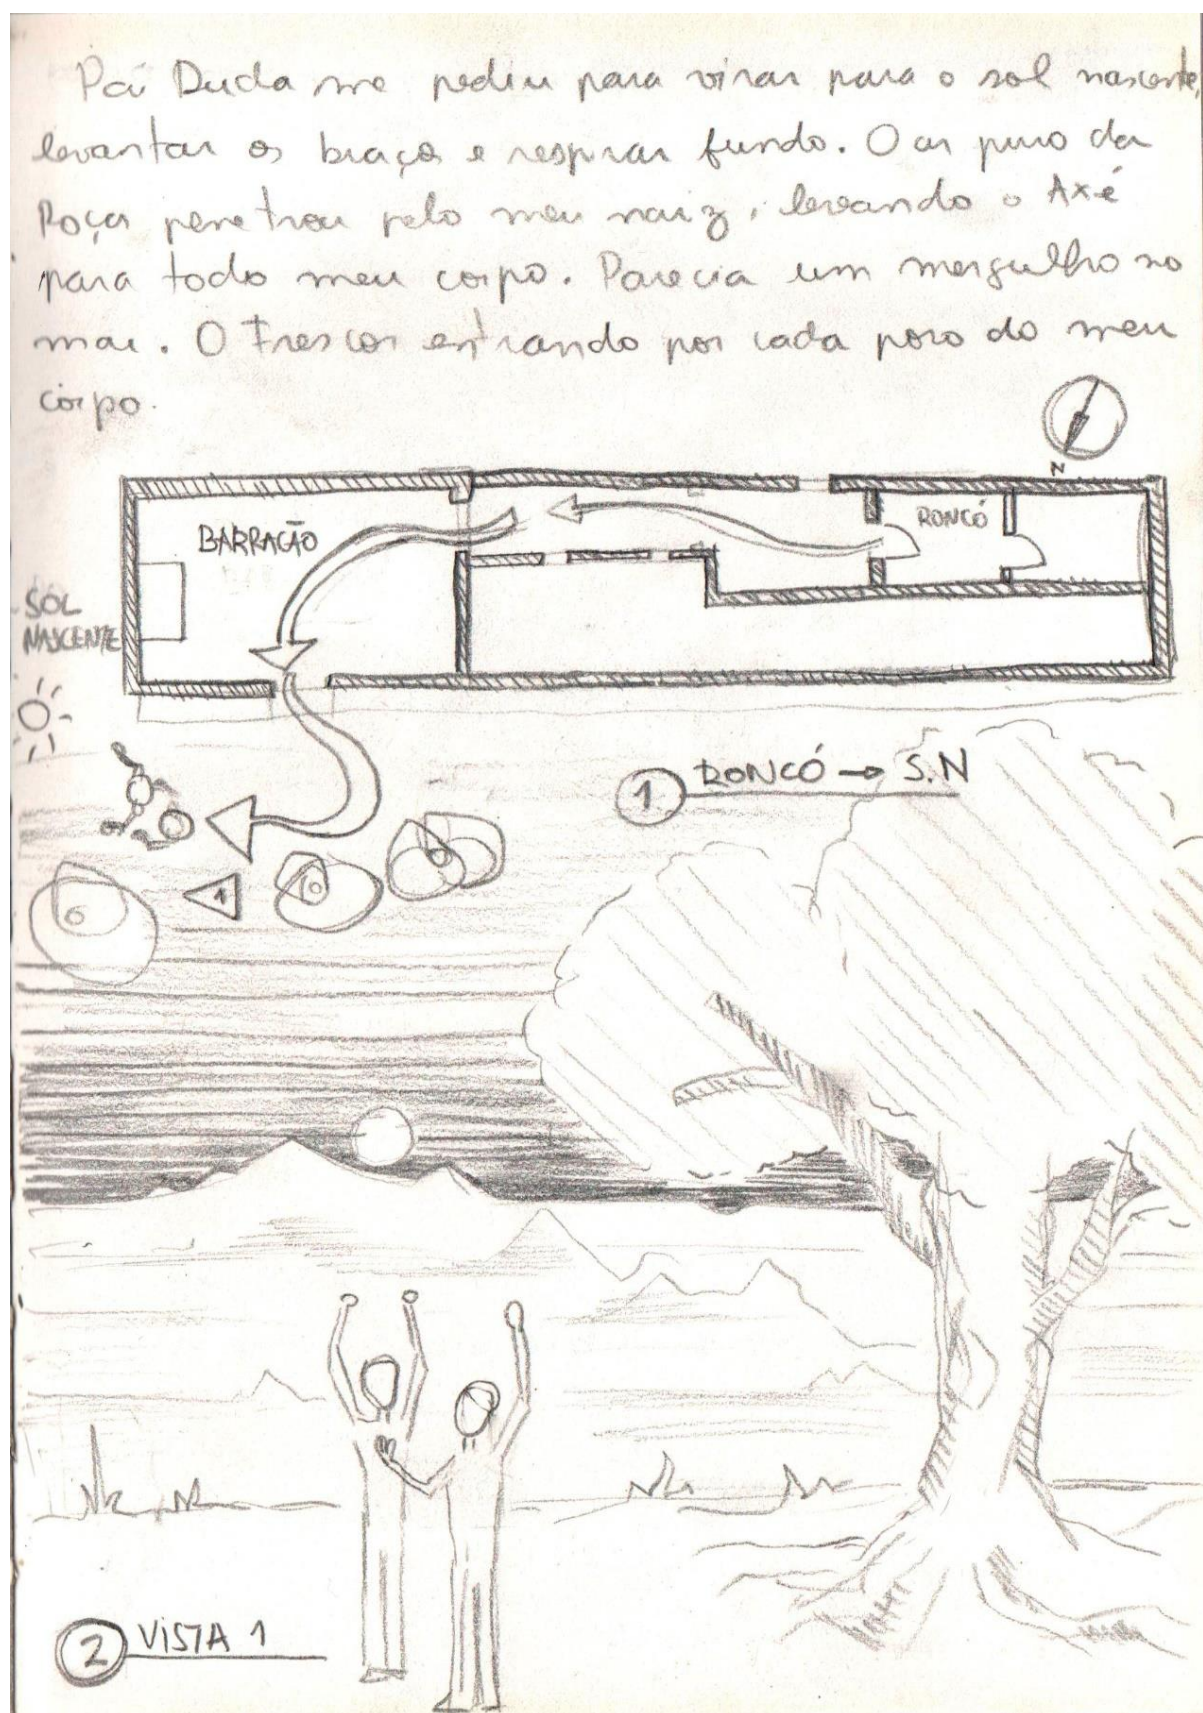 Pai Duda me pediu para virar para o sol nascente,
levantar os braços e respirar fundo. O ar puro da
Roça penetrou pelo meu nariz, levando o Axé
para todo meu corpo. Parecia um mergulho no
mar. O Frescor entrando por cada poro do meu
corpo.
N
BARRACÃO
RONCÓ
SOL
NASCENTE
1 RONCÓ → S.N
1
2 VISTA 1